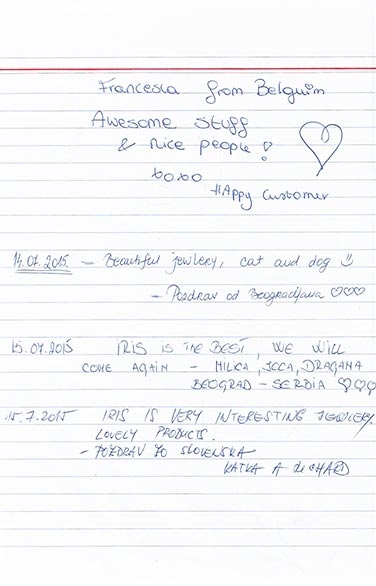 Francesca from Belguim
Awesome stuff
& nice people!
xoxo
HAppy Customer
14.07.2015. – Beautiful jewlery, cat and dog
– Pozdrav od Beogradjana
15.07.2015 IRIS IS THE BEST, WE WILL
COME AGAIN – MILICA, JOCA, DRAGANA
BEOGRAD – SERBIA
15.7.2015 IRIS IS VERY INTERESTING JEWLERY.
LOVELY PRODUCTS.
– POZDRAV ZO SLOVENSKA
KATKA A RICHARD